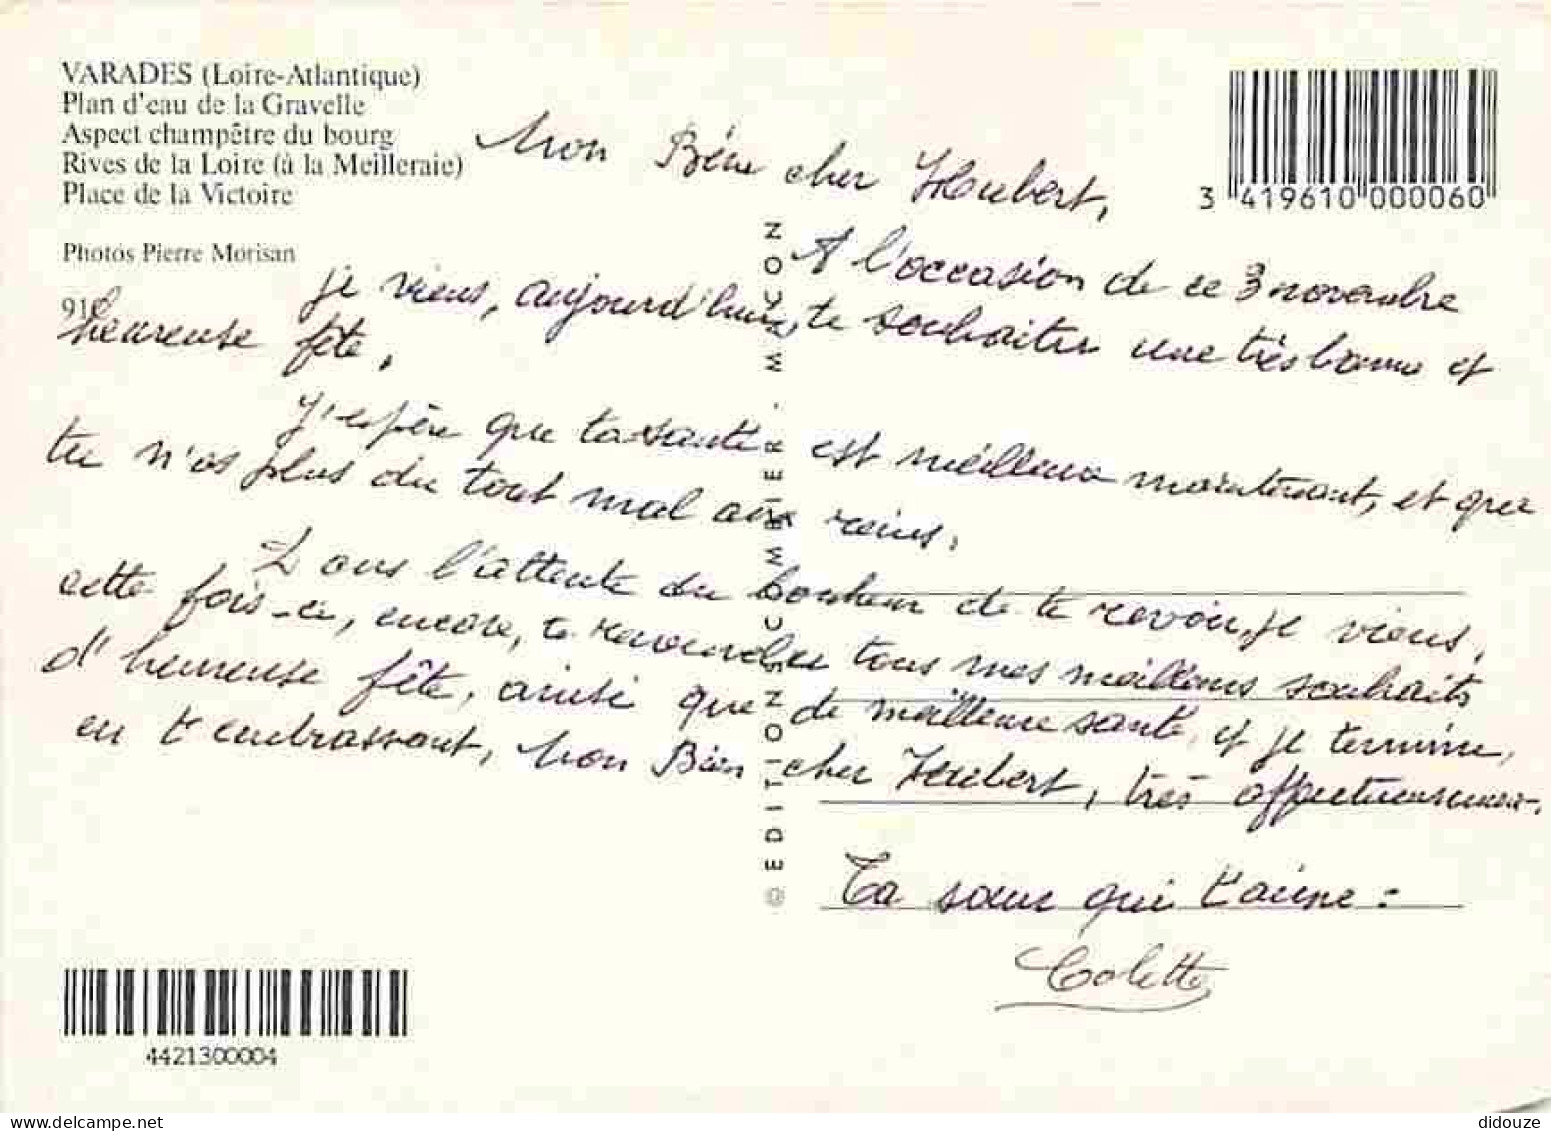 VARADES (Loire-Atlantique)
Plan d'eau de la Gravelle
Aspect champêtre du bourg
Rives de la Loire (à la Meilleraie)
Place de la Victoire
Photos Pierre Morisan
910
3 419610 000060
Mon Bien cher Houbert,
A l'occasion de ce 3 novembre
je viens, aujourd'hui, te souhaiter une très bonne et
heureuse fête.
J'espère que ta santé est meilleure maintenant, et que
tu n'as plus du tout mal aux reins.
Dans l'attente du bonheur de te revoir, je viens,
cette fois-ci, encore, te renouveler tous mes meilleurs souhaits
d'heureuse fête, ainsi que de meilleure santé, et je termine,
en t'embrassant, Mon Bien cher Houbert, très affectueusement.
Ta sœur qui t'aime :
Colette
© EDITIONS COMBIER MACON
4421300004
didouze